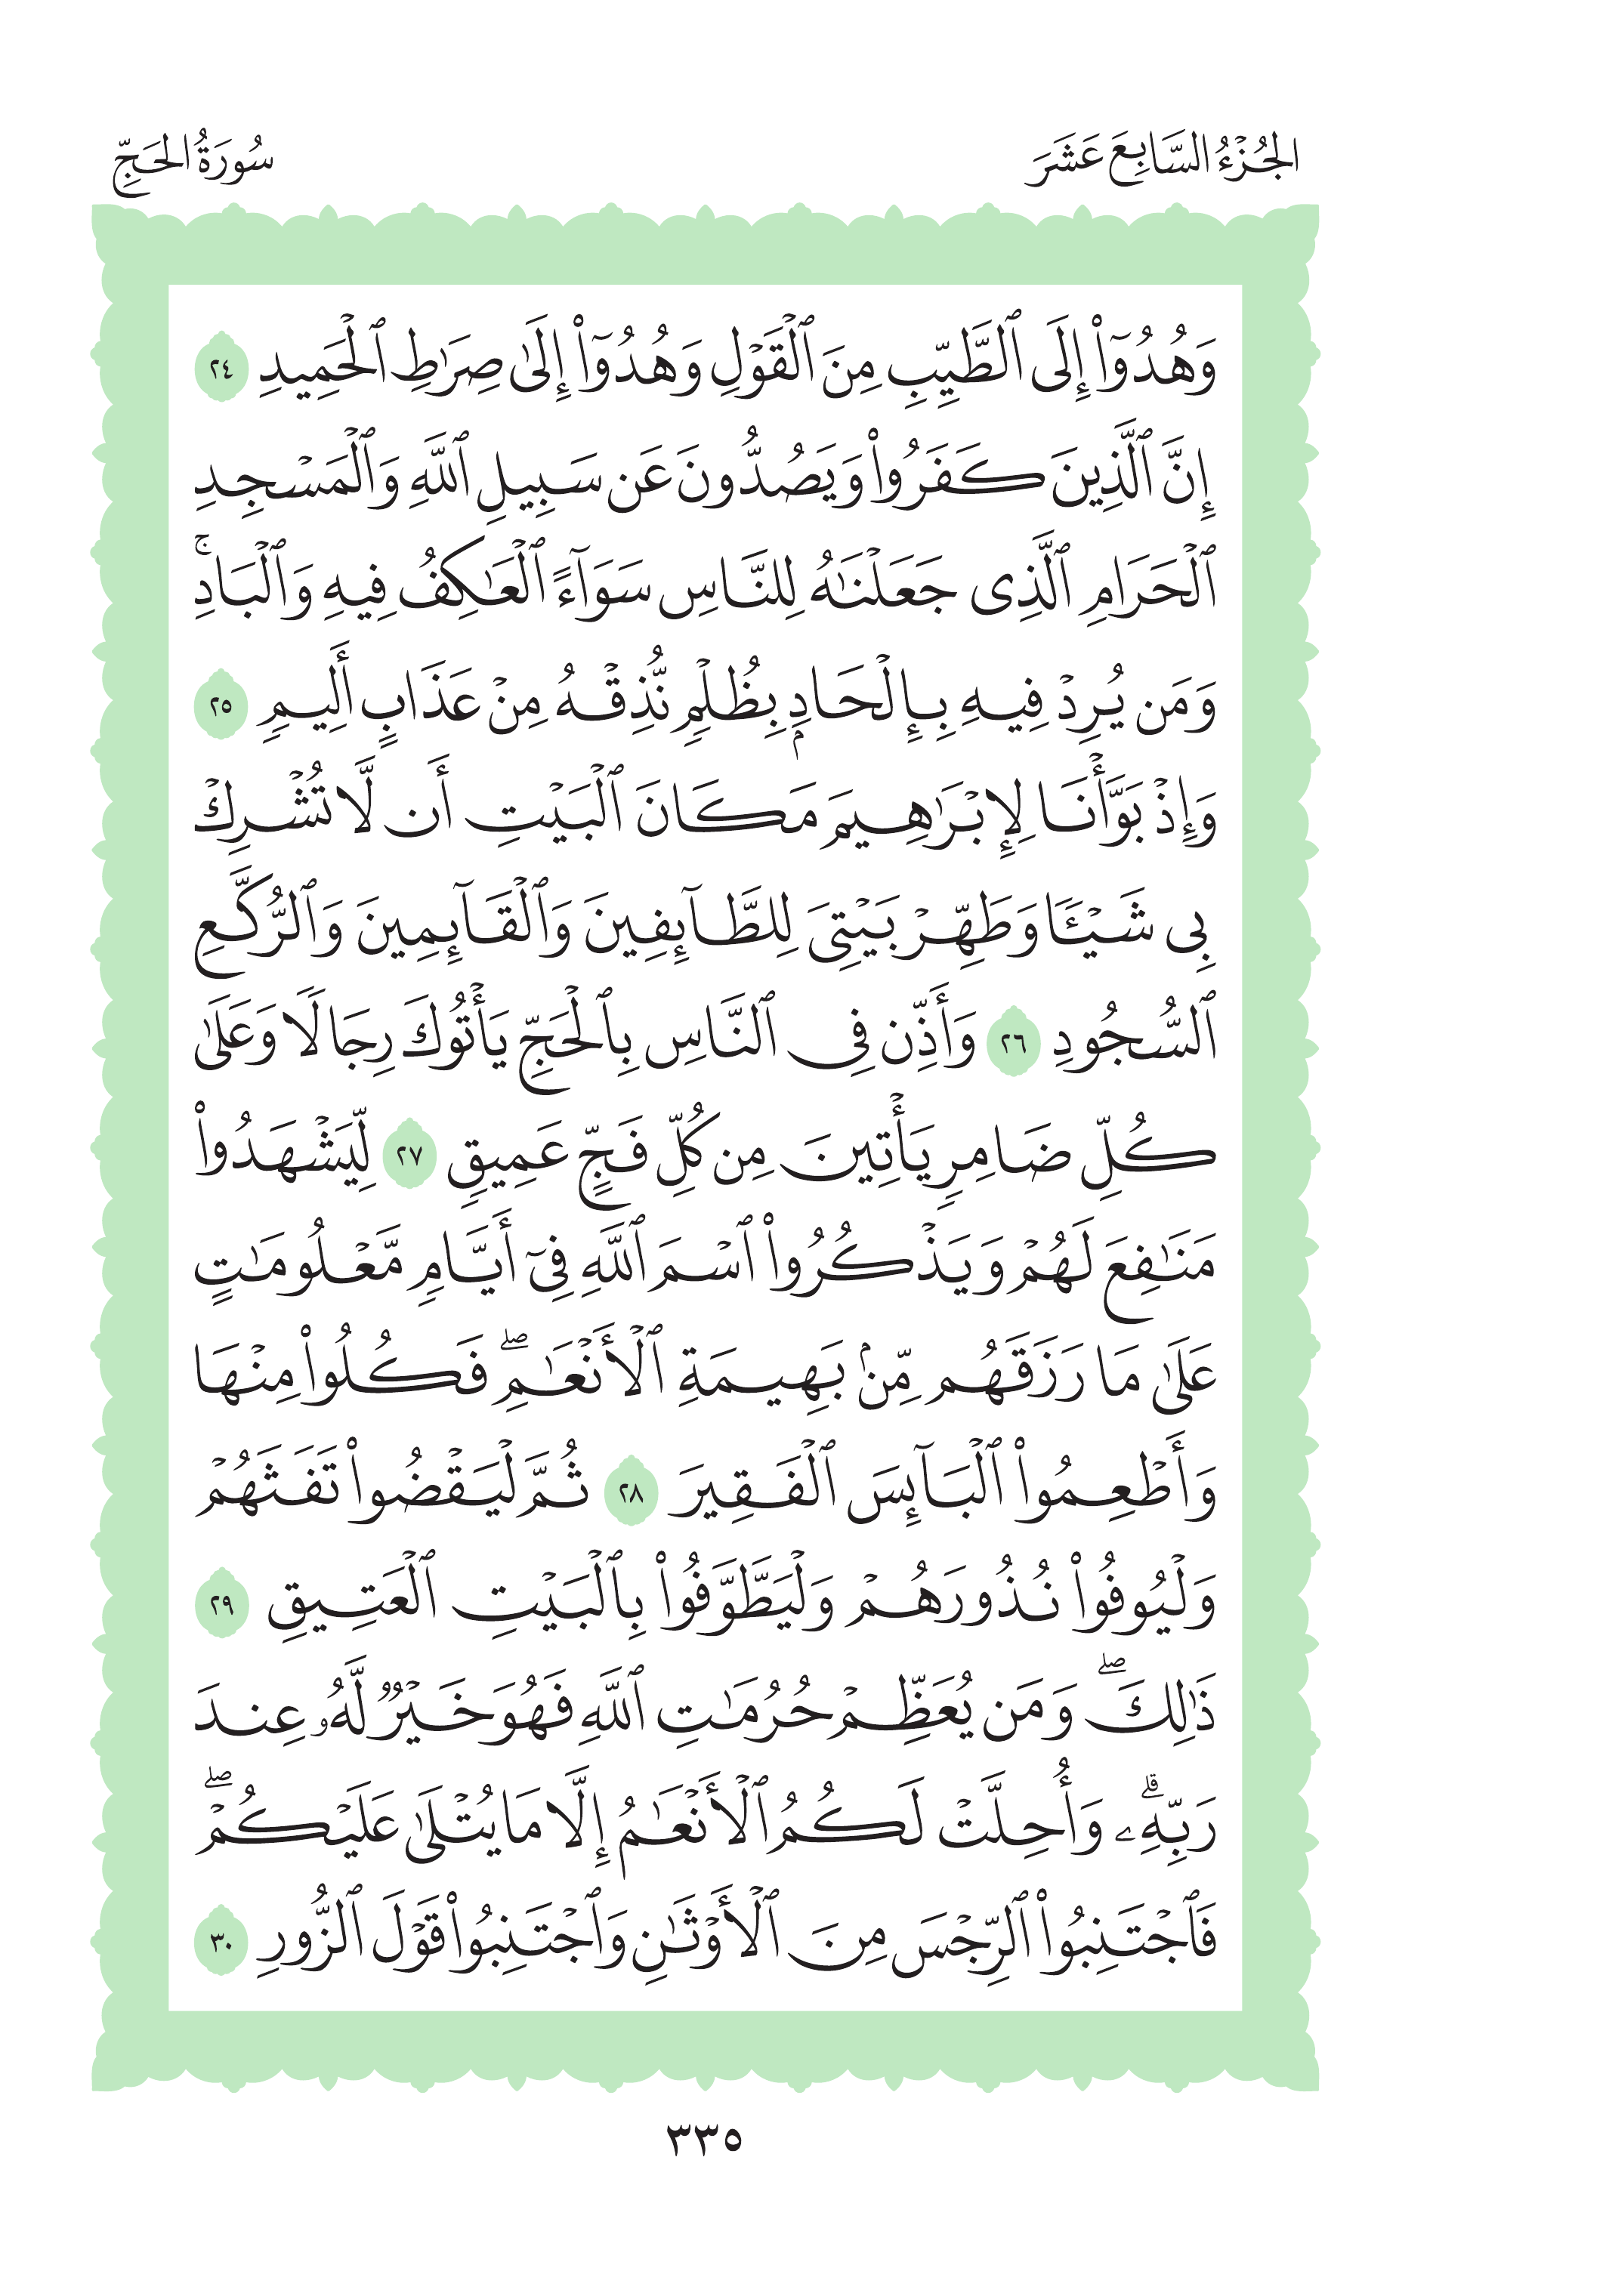 الجُزْءُ السَّابِعَ عَشَرَ
سُورَةُ الحَجِّ
وَهُدُوٓاْ إِلَى ٱلطَّيِّبِ مِنَ ٱلْقَوْلِ وَهُدُوٓاْ إِلَىٰ صِرَٰطِ ٱلْحَمِيدِ ٢٤
إِنَّ ٱلَّذِينَ كَفَرُواْ وَيَصُدُّونَ عَن سَبِيلِ ٱللَّهِ وَٱلْمَسْجِدِ
ٱلْحَرَامِ ٱلَّذِى جَعَلْنَٰهُ لِلنَّاسِ سَوَآءً ٱلْعَٰكِفُ فِيهِ وَٱلْبَادِۚ
وَمَن يُرِدْ فِيهِ بِإِلْحَادِۭ بِظُلْمٍ نُّذِقْهُ مِنْ عَذَابٍ أَلِيمٍ ٢٥
وَإِذْ بَوَّأْنَا لِإِبْرَٰهِيمَ مَكَانَ ٱلْبَيْتِ أَن لَّا تُشْرِكْ
بِى شَيْـًٔا وَطَهِّرْ بَيْتِىَ لِلطَّآئِفِينَ وَٱلْقَآئِمِينَ وَٱلرُّكَّعِ
ٱلسُّجُودِ ٢٦ وَأَذِّن فِى ٱلنَّاسِ بِٱلْحَجِّ يَأْتُوكَ رِجَالًا وَعَلَىٰ
كُلِّ ضَامِرٍ يَأْتِينَ مِن كُلِّ فَجٍّ عَمِيقٍ ٢٧ لِّيَشْهَدُواْ
مَنَٰفِعَ لَهُمْ وَيَذْكُرُواْ ٱسْمَ ٱللَّهِ فِىٓ أَيَّامٍ مَّعْلُومَٰتٍ
عَلَىٰ مَا رَزَقَهُم مِّنۢ بَهِيمَةِ ٱلْأَنْعَٰمِۖ فَكُلُواْ مِنْهَا
وَأَطْعِمُواْ ٱلْبَآئِسَ ٱلْفَقِيرَ ٢٨ ثُمَّ لْيَقْضُواْ تَفَثَهُمْ
وَلْيُوفُواْ نُذُورَهُمْ وَلْيَطَّوَّفُواْ بِٱلْبَيْتِ ٱلْعَتِيقِ ٢٩
ذَٰلِكَۖ وَمَن يُعَظِّمْ حُرُمَٰتِ ٱللَّهِ فَهُوَ خَيْرٌ لَّهُۥ عِندَ
رَبِّهِۦۗ وَأُحِلَّتْ لَكُمُ ٱلْأَنْعَٰمُ إِلَّا مَا يُتْلَىٰ عَلَيْكُمْۖ
فَٱجْتَنِبُواْ ٱلرِّجْسَ مِنَ ٱلْأَوْثَٰنِ وَٱجْتَنِبُواْ قَوْلَ ٱلزُّورِ ٣٠
٣٣٥